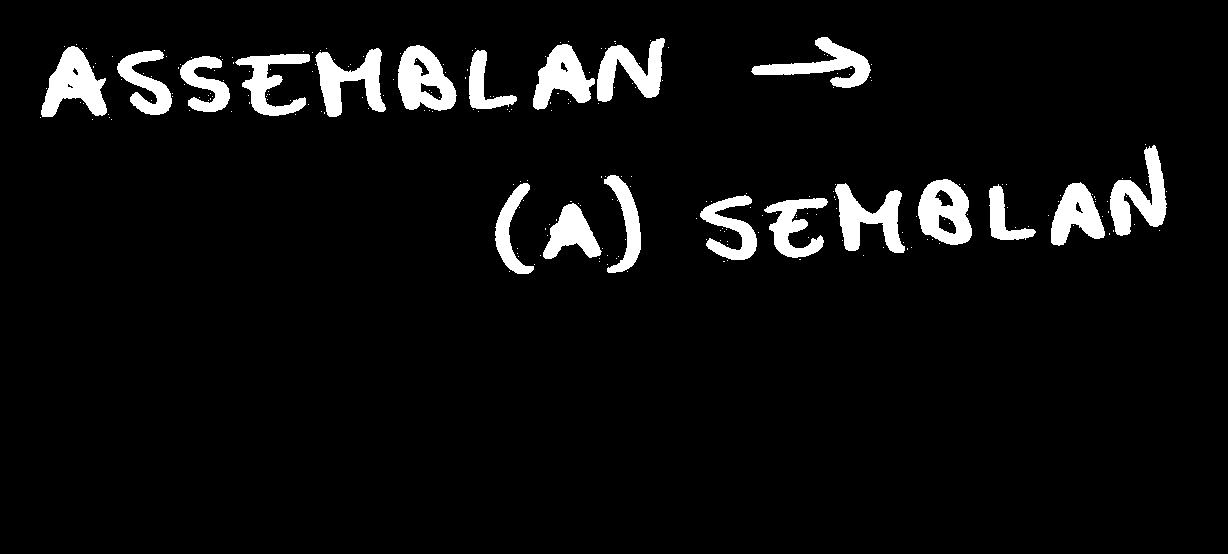 ASSEMBLAN →
(A) SEMBLAN